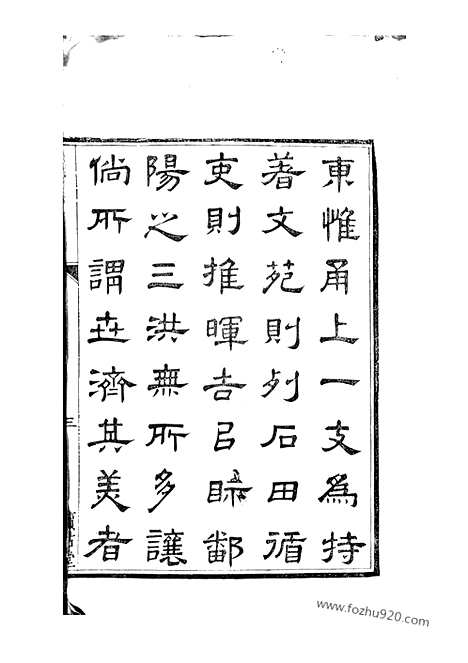 東惟甬上一支為持
著文苑則列石田循
吏則推暉吉㠯眎鄱
陽之三洪無所多讓
倘所謂世濟其美者
三
www.fozhu920.com